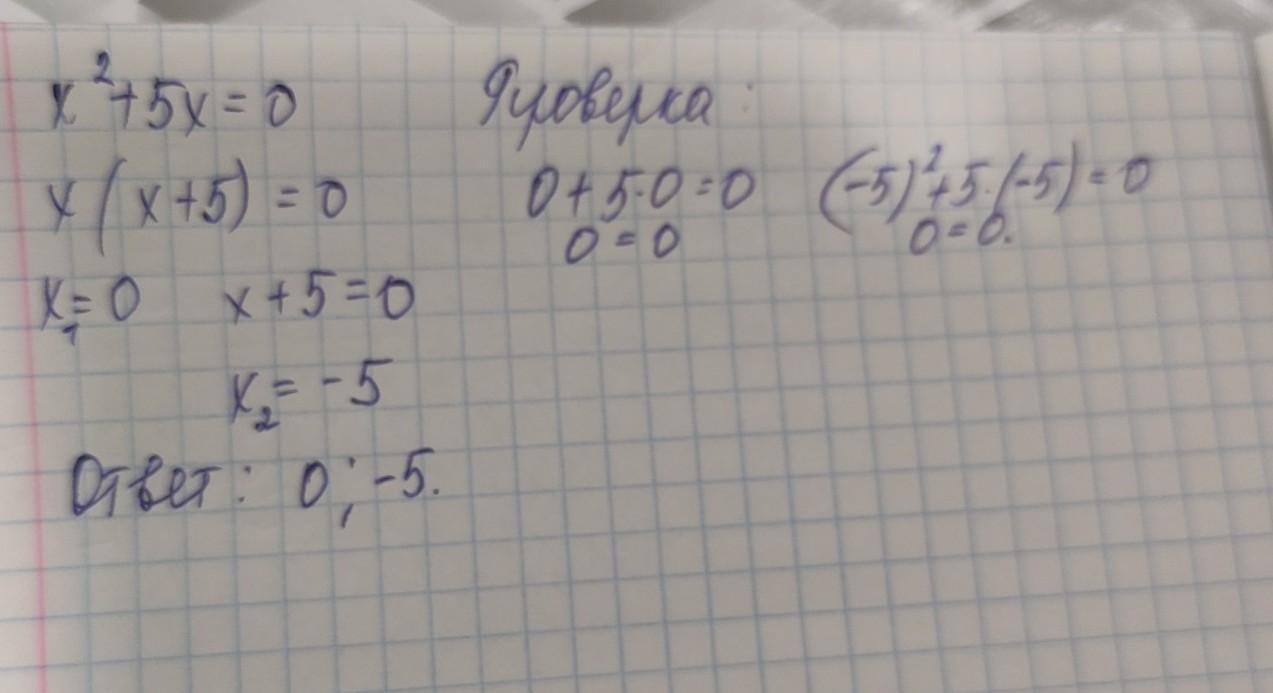 x²+5x=0
x(x+5)=0
x₁=0 x+5=0
x₂=-5
Ответ: 0; -5.
Проверка:
0+5·0=0 (-5)²+5·(-5)=0
0=0 0=0.